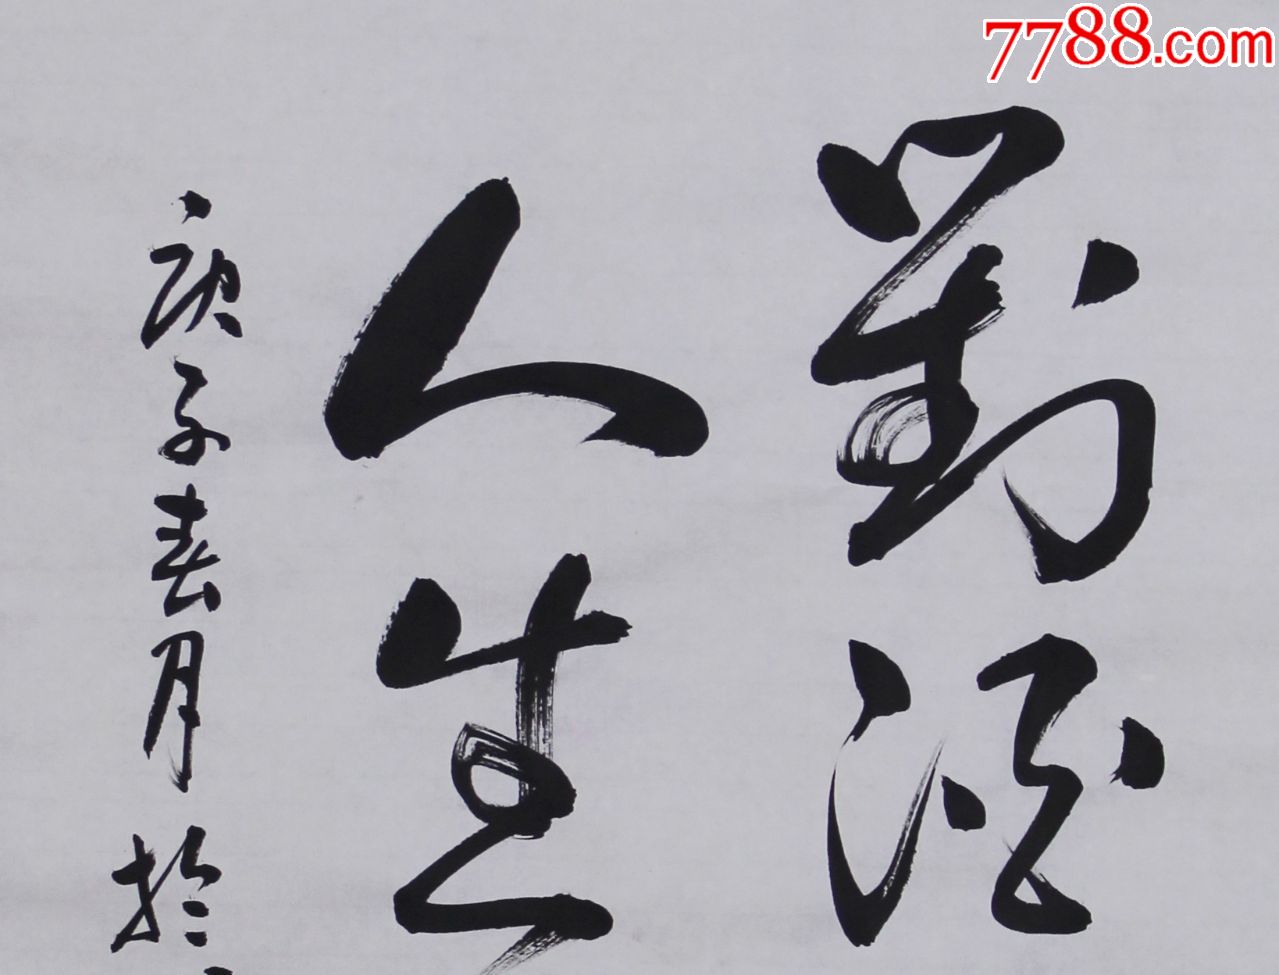 7788.com
對酒
人生
庚子春月於